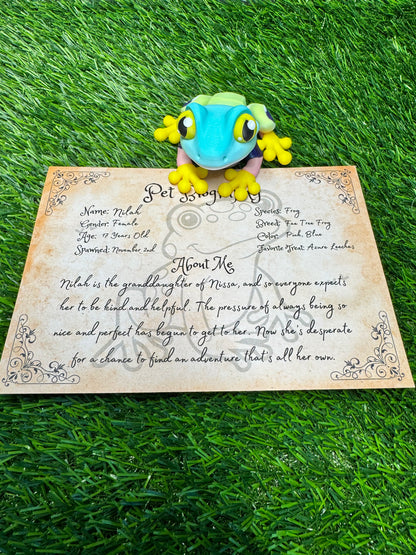 Pet Biography
Name: Nilah
Species: Frog
Gender: Female
Breed: Fae Tree Frog
Age: 17 Years Old
Color: Pink, Blue
Spawned: November 2nd
Favorite Treat: Azure Leeches
About Me
Nilah is the granddaughter of Nissa, and so everyone expects
her to be kind and helpful. The pressure of always being so
nice and perfect has begun to get to her. Now she's desperate
for a chance to find an adventure that's all her own.